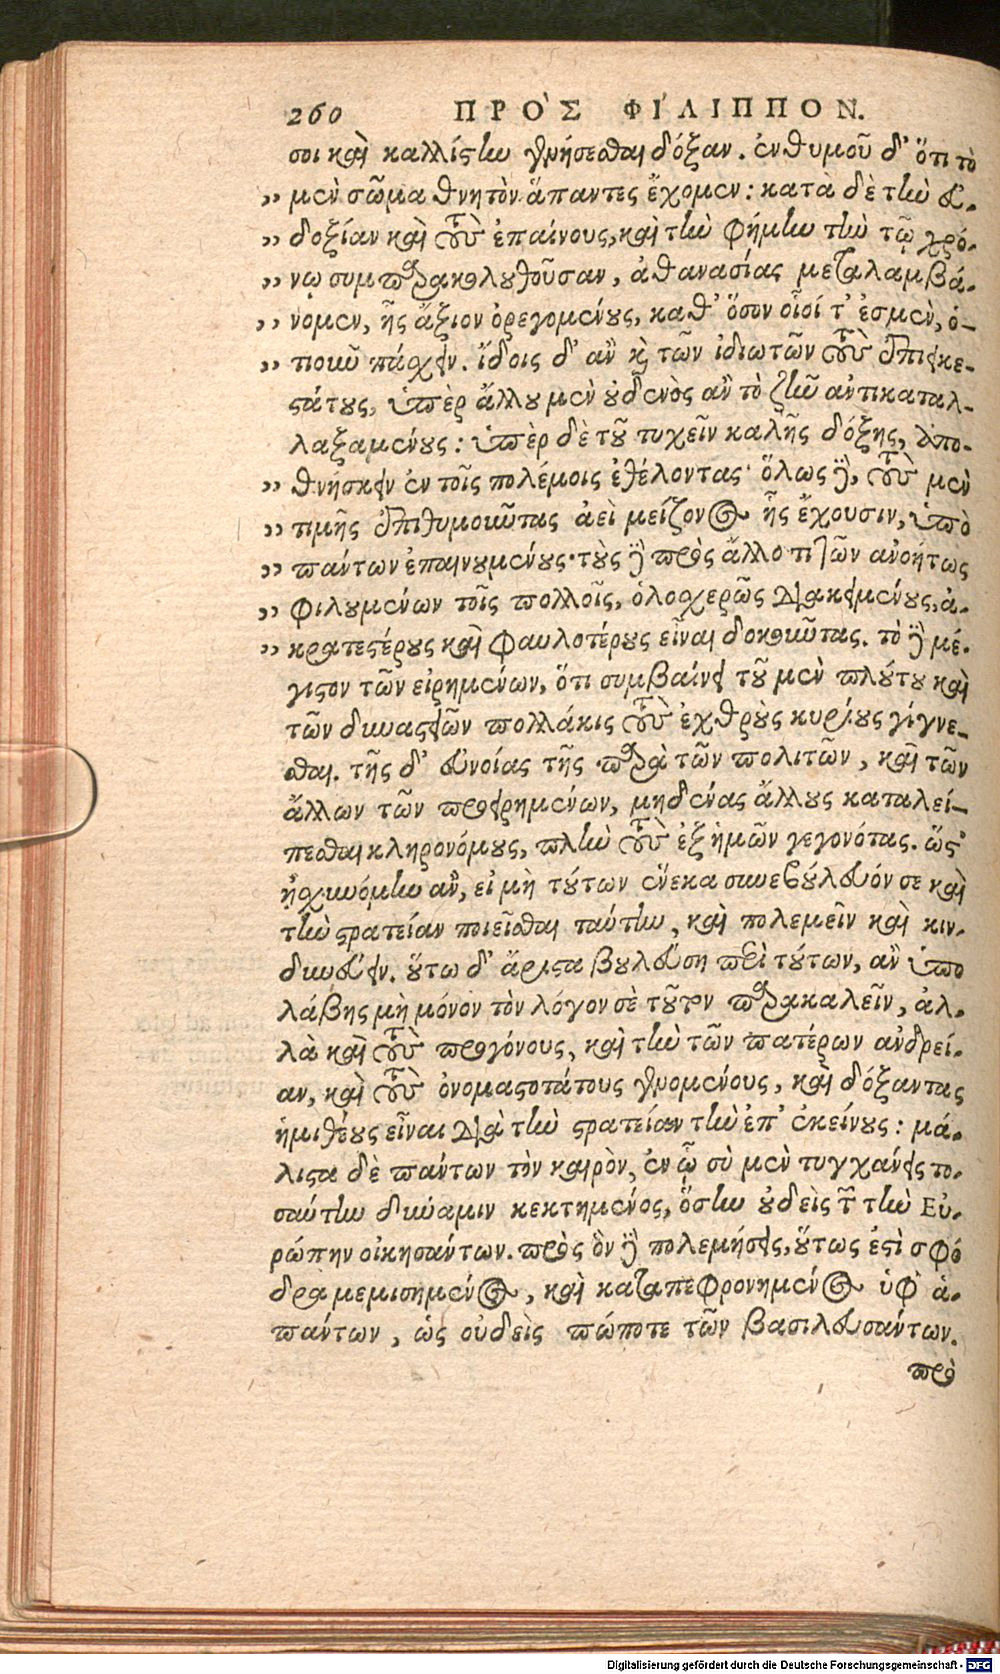 260 ΠΡΟ`Σ ΦΙ΄ΛΙΠΠΟΝ.
σοι καὶ καλλίστην γενήσεσθαι δόξαν. ἐνθυμοῦ δ' ὅτι τὸ
„ μὲν σῶμα θνητὸν ἅπαντες ἔχομεν: κατὰ δὲ τὴν εὐ-
„ δοξίαν καὶ τοὺς ἐπαίνους, καὶ τὴν φήμην τὴν τῷ χρό-
„ νῳ συμπαρακολουθοῦσαν, ἀθανασίας μεταλαμβά-
„ νομεν, ἧς ἄξιον ὀρεγομένους, καθ' ὅσον οἷοί τ' ἐσμὲν, ὁ-
„ τιοῦν πάσχειν. ἴδοις δ' ἂν καὶ τῶν ἰδιωτῶν τοὺς ἐπιεικε-
στάτους, ὑπὲρ ἄλλου μὲν οὐδενὸς ἂν τὸ ζῆν ἀντικαταλ-
λαξαμένους: ὑπὲρ δὲ τοῦ τυχεῖν καλῆς δόξης, ἀπο-
„ θνήσκειν ἐν τοῖς πολέμοις ἐθέλοντας· ὅλως δὲ, τοὺς μὲν
„ τιμῆς ἐπιθυμοῦντας ἀεὶ μείζονος ἧς ἔχουσιν, ὑπὸ
„ πάντων ἐπαινουμένους· τοὺς δὲ πρὸς ἄλλο τι τῶν ἀνοήτως
„ φιλουμένων τοῖς πολλοῖς, ὁλοσχερῶς διακειμένους, ἀ-
„ κρατεστέρους καὶ φαυλοτέρους εἶναι δοκοῦντας. τὸ δὲ μέ-
γιστον τῶν εἰρημένων, ὅτι συμβαίνει τοῦ μὲν πλούτου καὶ
τῶν δυναστειῶν πολλάκις τοὺς ἐχθροὺς κυρίους γίγνε-
σθαι. τῆς δ' εὐνοίας τῆς παρὰ τῶν πολιτῶν, καὶ τῶν
ἄλλων τῶν προειρημένων, μηδένας ἄλλους καταλεί-
πεσθαι κληρονόμους, πλὴν τοὺς ἐξ ἡμῶν γεγονότας. ὥς'
ᾐσχυνόμην ἂν, εἰ μὴ τούτων ἕνεκα συνεβούλευόν σε καὶ
τὴν στρατείαν ποιεῖσθαι ταύτην, καὶ πολεμεῖν καὶ κιν-
δυνεύειν. οὕτω δ' ἄριστα βουλεύσῃ περὶ τούτων, ἂν ὑπο
λάβης μὴ μόνον τὸν λόγον σὲ τοῦτον παρακαλεῖν, ἀλ-
λὰ καὶ τοὺς προγόνους, καὶ τὴν τῶν πατέρων ἀνδρεί-
αν, καὶ τοὺς ὀνομαστοτάτους γενομένους, καὶ δόξαντας
ἡμιθέους εἶναι διὰ τὴν στρατείαν τὴν ἐπ' ἐκείνους: μά-
λιστα δὲ πάντων τὸν καιρὸν, ἐν ᾧ σὺ μὲν τυγχάνεις το-
σαύτην δύναμιν κεκτημένος, ὅσην οὐδεὶς τῶν τὴν Εὐ-
ρώπην οἰκησάντων. πρὸς ὃν δὲ πολεμήσεις, οὕτως ἐστὶ σφό
δρα μεμισημένος, καὶ καταπεφρονημένος ὑφ' ἁ-
πάντων, ὡς οὐδεὶς πώποτε τῶν βασιλευσάντων.
πρὸ
Digitalisierung gefördert durch die Deutsche Forschungsgemeinschaft - DFG